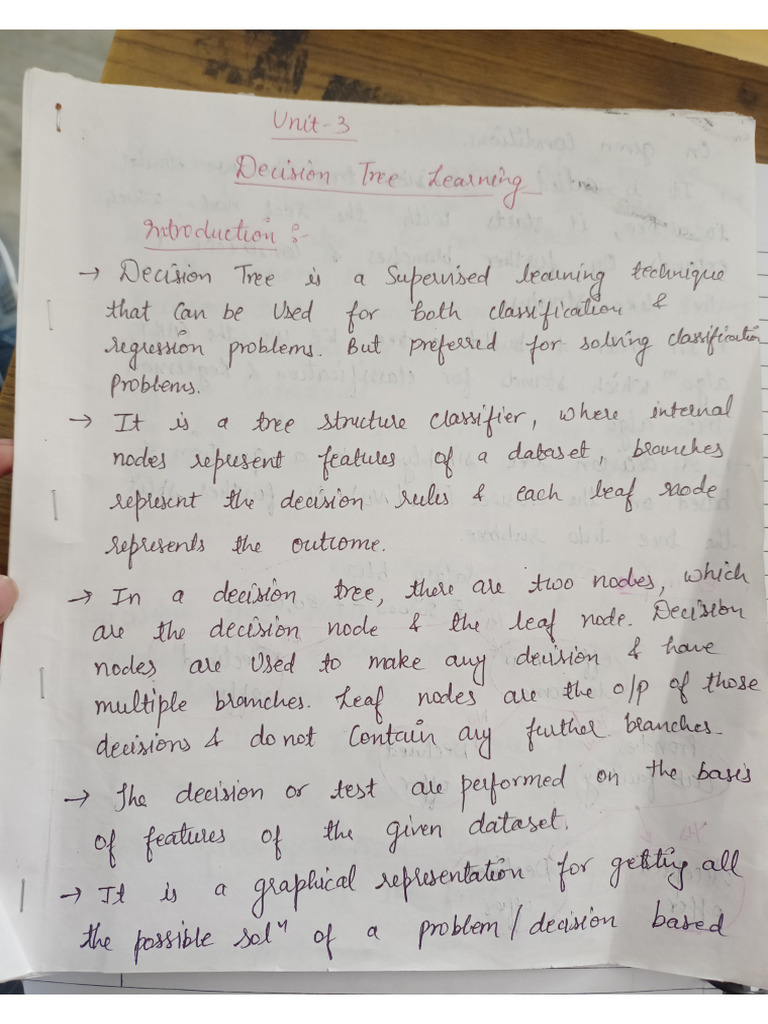 Unit-3
Decision Tree Learning
Introduction :-
→ Decision Tree is a Supervised learning technique
that can be used for both classification &
regression problems. But preferred for solving classification
problems.
→ It is a tree structure classifier, where internal
nodes represent features of a dataset, branches
represent the decision rules & each leaf node
represents the outcome.
→ In a decision tree, there are two nodes, which
are the decision node & the leaf node. Decision
nodes are used to make any decision & have
multiple branches. Leaf nodes are the o/p of those
decisions & do not contain any further branches.
→ The decision or test are performed on the basis
of features of the given dataset.
→ It is a graphical representation for getting all
the possible solⁿ of a problem/decision based